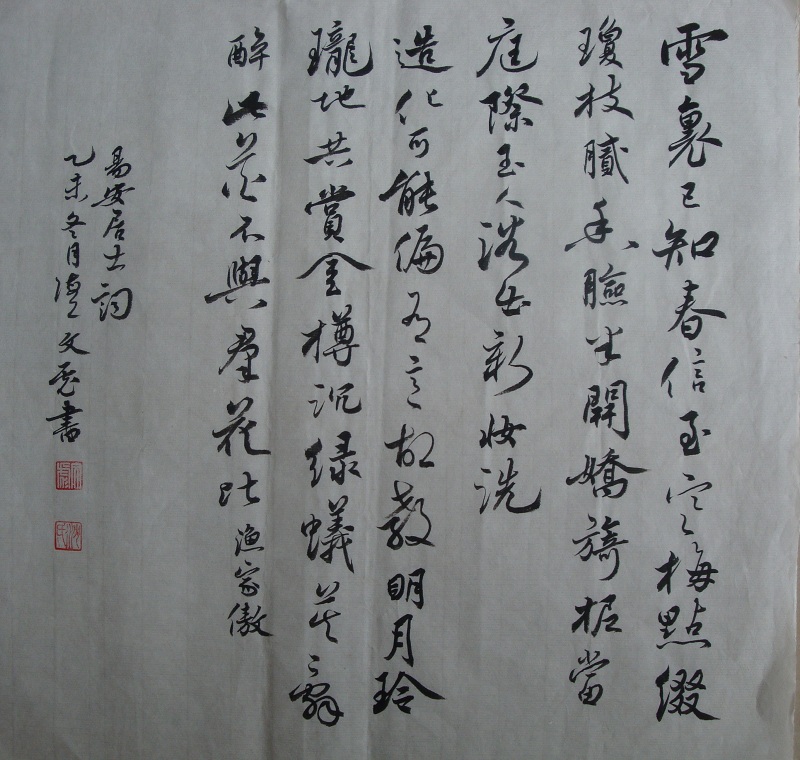 雪裏已知春信至寒梅點綴
瓊枝膩香臉半開嬌旖旎當
庭際玉人浴出新妝洗
造化可能偏有意故教明月玲
瓏地共賞金樽沉綠蟻莫辭
醉此花不與羣花比漁家傲
易安居士詞
乙未冬月文書